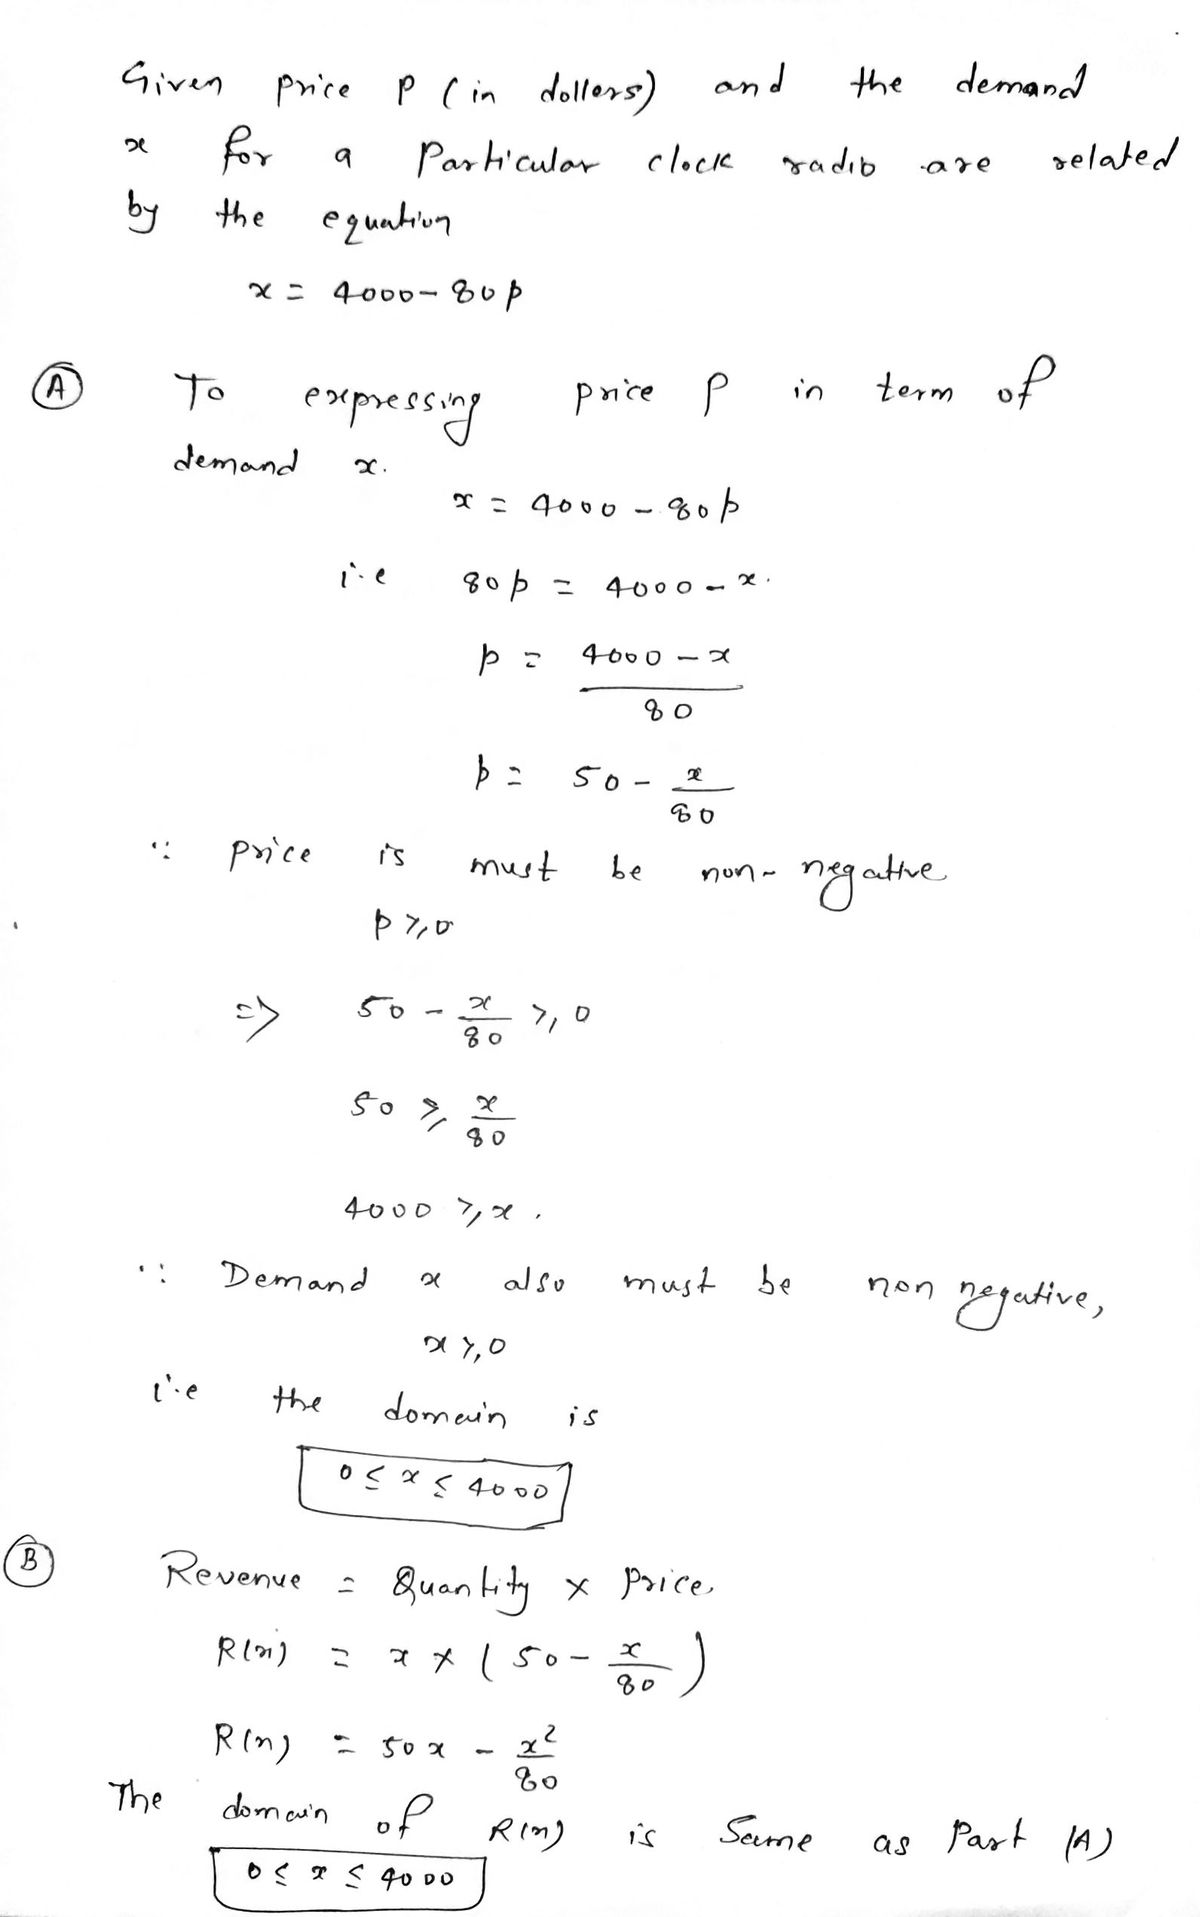 Given price P (in dollers) and the demand
x for a Particular clock radio are related
by the equation
x = 4000 - 80p
(A) To expressing price P in term of
demand x.
x = 4000 - 80p
i.e 80p = 4000 - x.
p = 4000 - x
80
p = 50 - x/80
∵ price is must be non-negative
p ≥ 0
⇒ 50 - x/80 ≥ 0
50 ≥ x/80
4000 ≥ x.
∵ Demand x also must be non negative,
x ≥ 0
i.e the domain is
0 ≤ x ≤ 4000
(B) Revenue = Quantity × Price.
R(x) = x × (50 - x/80)
R(x) = 50x - x²/80
The domain of R(x) is Same as Part (A)
0 ≤ x ≤ 4000